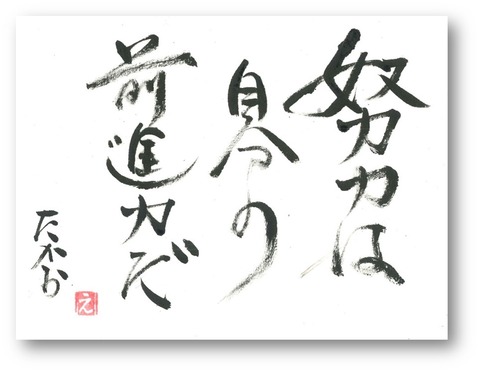 努力は
の
前進力だ
たかお
え